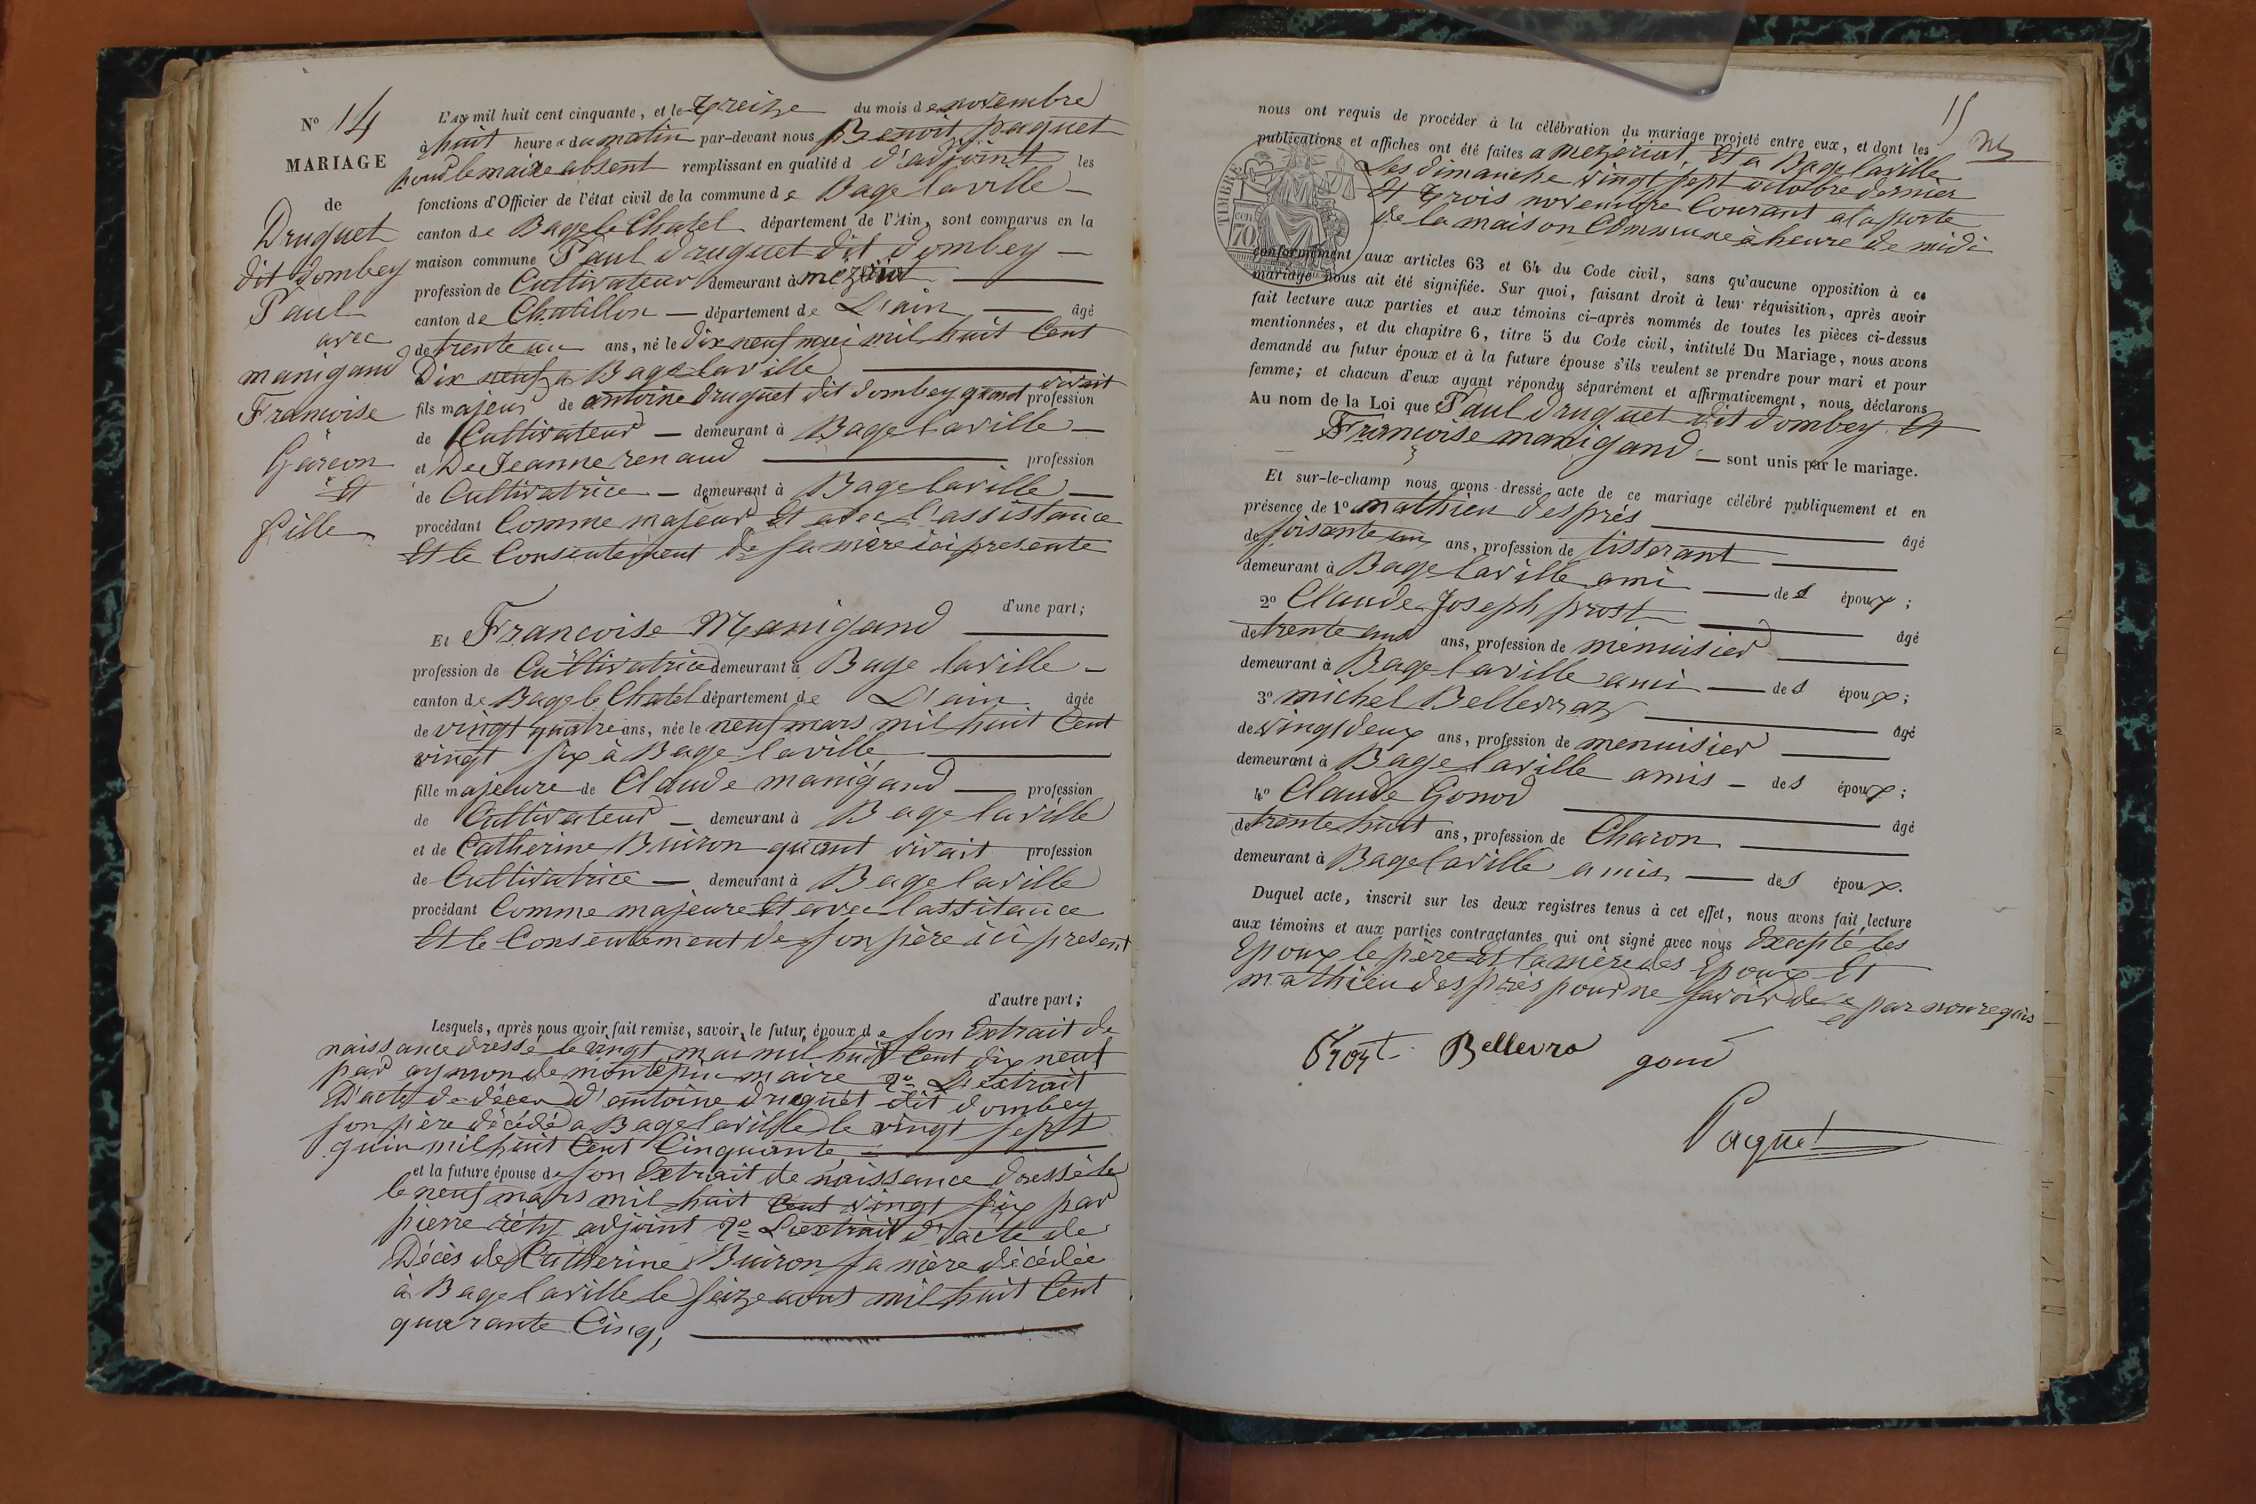 N° 14
MARIAGE
de
Druguet
dit dombey
Paul
avec
manigand
Francoise
Garcon
Et
fille
L'an mil huit cent cinquante, et le treize du mois de novembre
à huit heures du matin par-devant nous Benoit paquet
pour le maire absent remplissant en qualité d d'adjoint les
fonctions d'Officier de l'état civil de la commune de Bage laville
canton de Bage le Chatel département de l'Ain, sont comparus en la
maison commune Paul druguet dit dombey
profession de Cultivateur demeurant à mezériat
canton de Chatillon département de L'ain âgé
de trente un ans, né le dix neuf mai mil huit Cent
Dix neuf a Bage laville
fils majeur de antoine druguet dit dombey quand vivait profession
de Cultivateur demeurant à Bage laville
et De Jeanne renaud profession
de Cultivatrice demeurant à Bage laville
procédant Comme majeur Et avec l'assistance
Et le Consentement de sa mere ici presente
d'une part;
Et Francoise Manigand
profession de Cultivatrice demeurant à Bage laville
canton de Bage le Chatel département de L'ain âgée
de vingt quatre ans, née le neuf mars mil huit Cent
vingt six à Bage laville
fille majeure de Claude manigand profession
de Cultivateur demeurant à Bage laville
et de Catherine Buiron quant vivait profession
de Cultivatrice demeurant à Bage laville
procédant Comme majeure Et avec lassitance
Et le Consentement de son père ici present
d'autre part;
Lesquels, après nous avoir fait remise, savoir, le futur époux de son Extrait de
naissance dressé le vingt mai mil huit Cent dix neuf
par aymon de montépin maire 2° L'extrait
D'acte de décer d'antoine druguet dit dombey
son père décédé a Bage laville le vingt sept
juin mil huit Cent Cinquante
et la future épouse de son Extrait de naissance dressé le
le neuf mars mil huit Cent vingt six par
pierre adjoint 2° L'extrait d'acte de
Décès de Catherine Buiron sa mère décédée
à Bage laville le seize aout mil huit Cent
quarante Cinq,
15
nous ont requis de procéder à la célébration du mariage projeté entre eux, et dont les
publications et affiches ont été faites a mezériat, Et a Bage laville
Les dimanche vingt sept octobre dernier
Et trois novembre Courant a la porte
de la maison Commune à heure de midi
TIMBRE
70
conformément aux articles 63 et 64 du Code civil, sans qu'aucune opposition à ce
mariage nous ait été signifiée. Sur quoi, faisant droit à leur réquisition, après avoir
fait lecture aux parties et aux témoins ci-après nommés de toutes les pièces ci-dessus
mentionnées, et du chapitre 6, titre 5 du Code civil, intitulé Du Mariage, nous avons
demandé au futur époux et à la future épouse s'ils veulent se prendre pour mari et pour
femme; et chacun d'eux ayant répondu séparément et affirmativement, nous déclarons
Au nom de la Loi que Paul druguet dit dombey Et
Françoise manigand sont unis par le mariage.
Et sur-le-champ nous avons dressé acte de ce mariage célébré publiquement et en
présence de 1° mathieu després âgé
de soisante un ans, profession de tisserant
demeurant à Bage laville ami des époux;
2° Claude Joseph prost âgé
de trente ans ans, profession de menuisier
demeurant à Bage laville ami des époux;
3° michel Bellevraz âgé
de vingt deux ans, profession de menuisier
demeurant à Bage laville amis des époux;
4° Claude Gonod âgé
de trente huit ans, profession de Charon
demeurant à Bage laville amis des époux.
Duquel acte, inscrit sur les deux registres tenus à cet effet, nous avons fait lecture
aux témoins et aux parties contractantes qui ont signé avec nous Excepté les
Epoux le père Et la mère des Epoux Et
mathieu desprès pour ne savoir de ce par nous requis
Prost Bellevra gond
Paquet